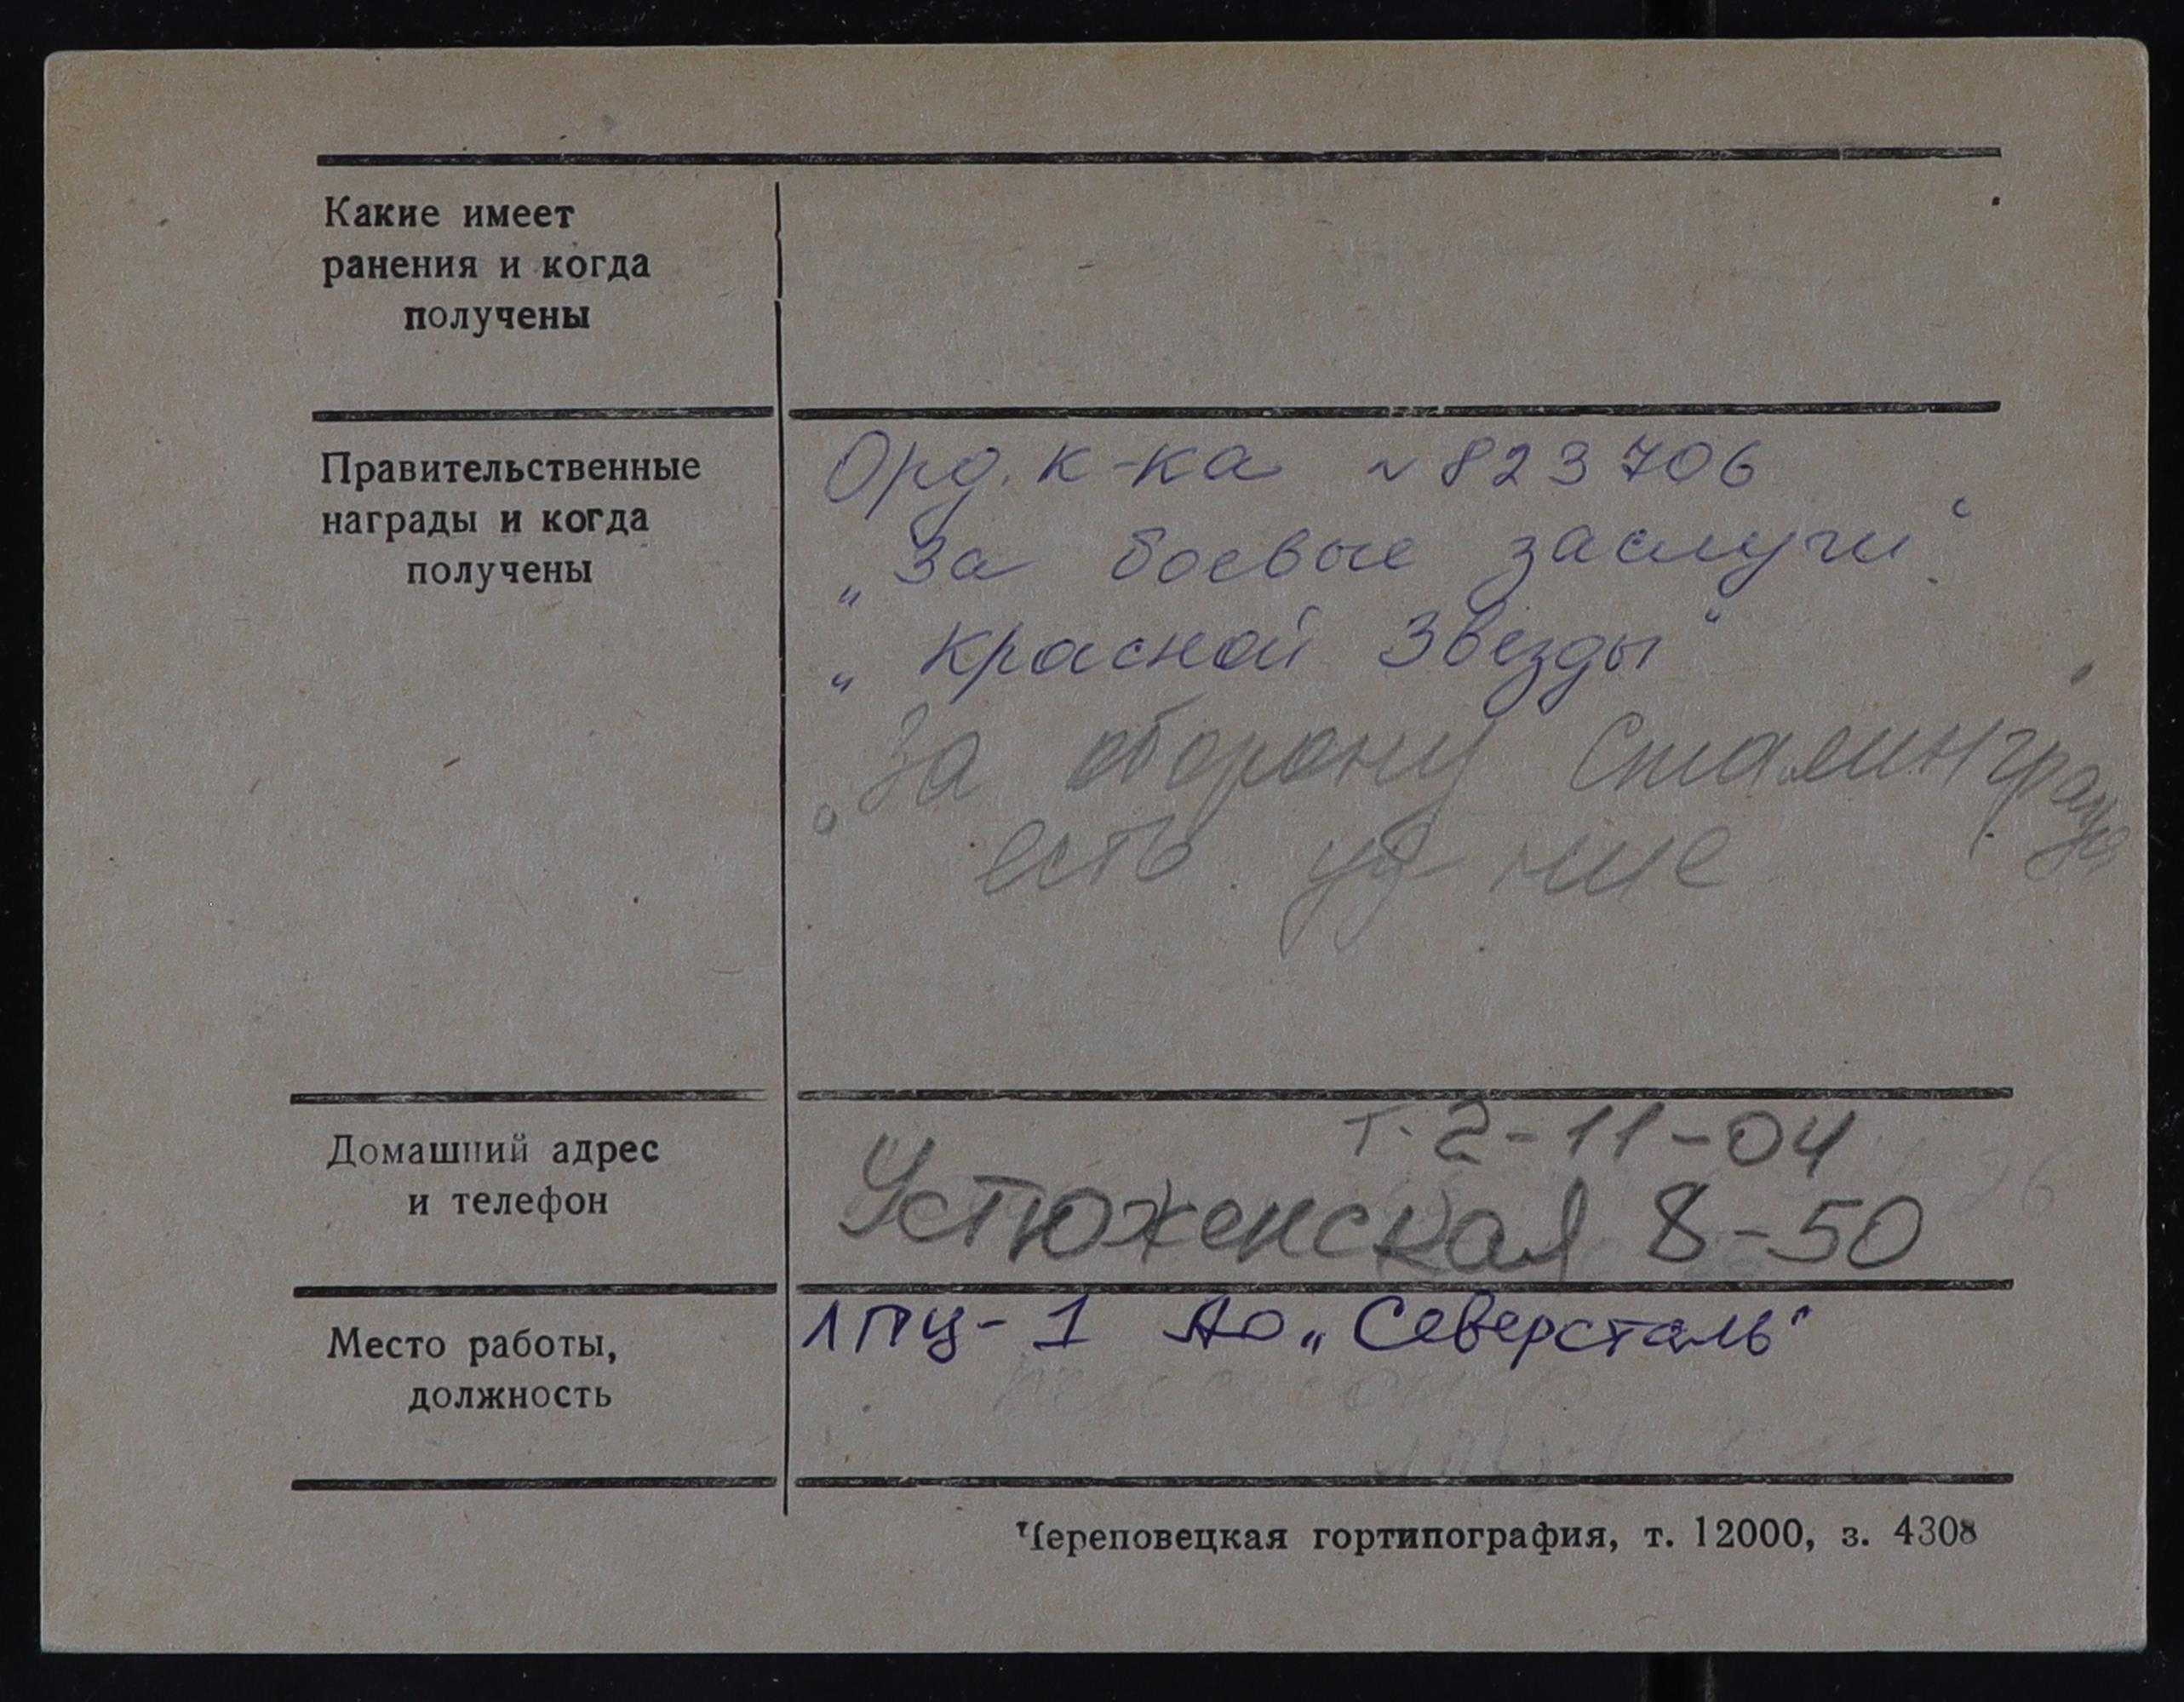 Какие имеет
ранения и когда
получены
Правительственные
награды и когда
получены
Орд. к-ка № 823706
„За боевые заслуги“
„Красной Звезды“
„За оборону Сталинграда
есть уд-ние
Домашний адрес
и телефон
т. 2-11-04
Устюженская 8-50
Место работы,
должность
ЛПЦ-1 АО „Северсталь“
Череповецкая гортипография, т. 12000, з. 4308